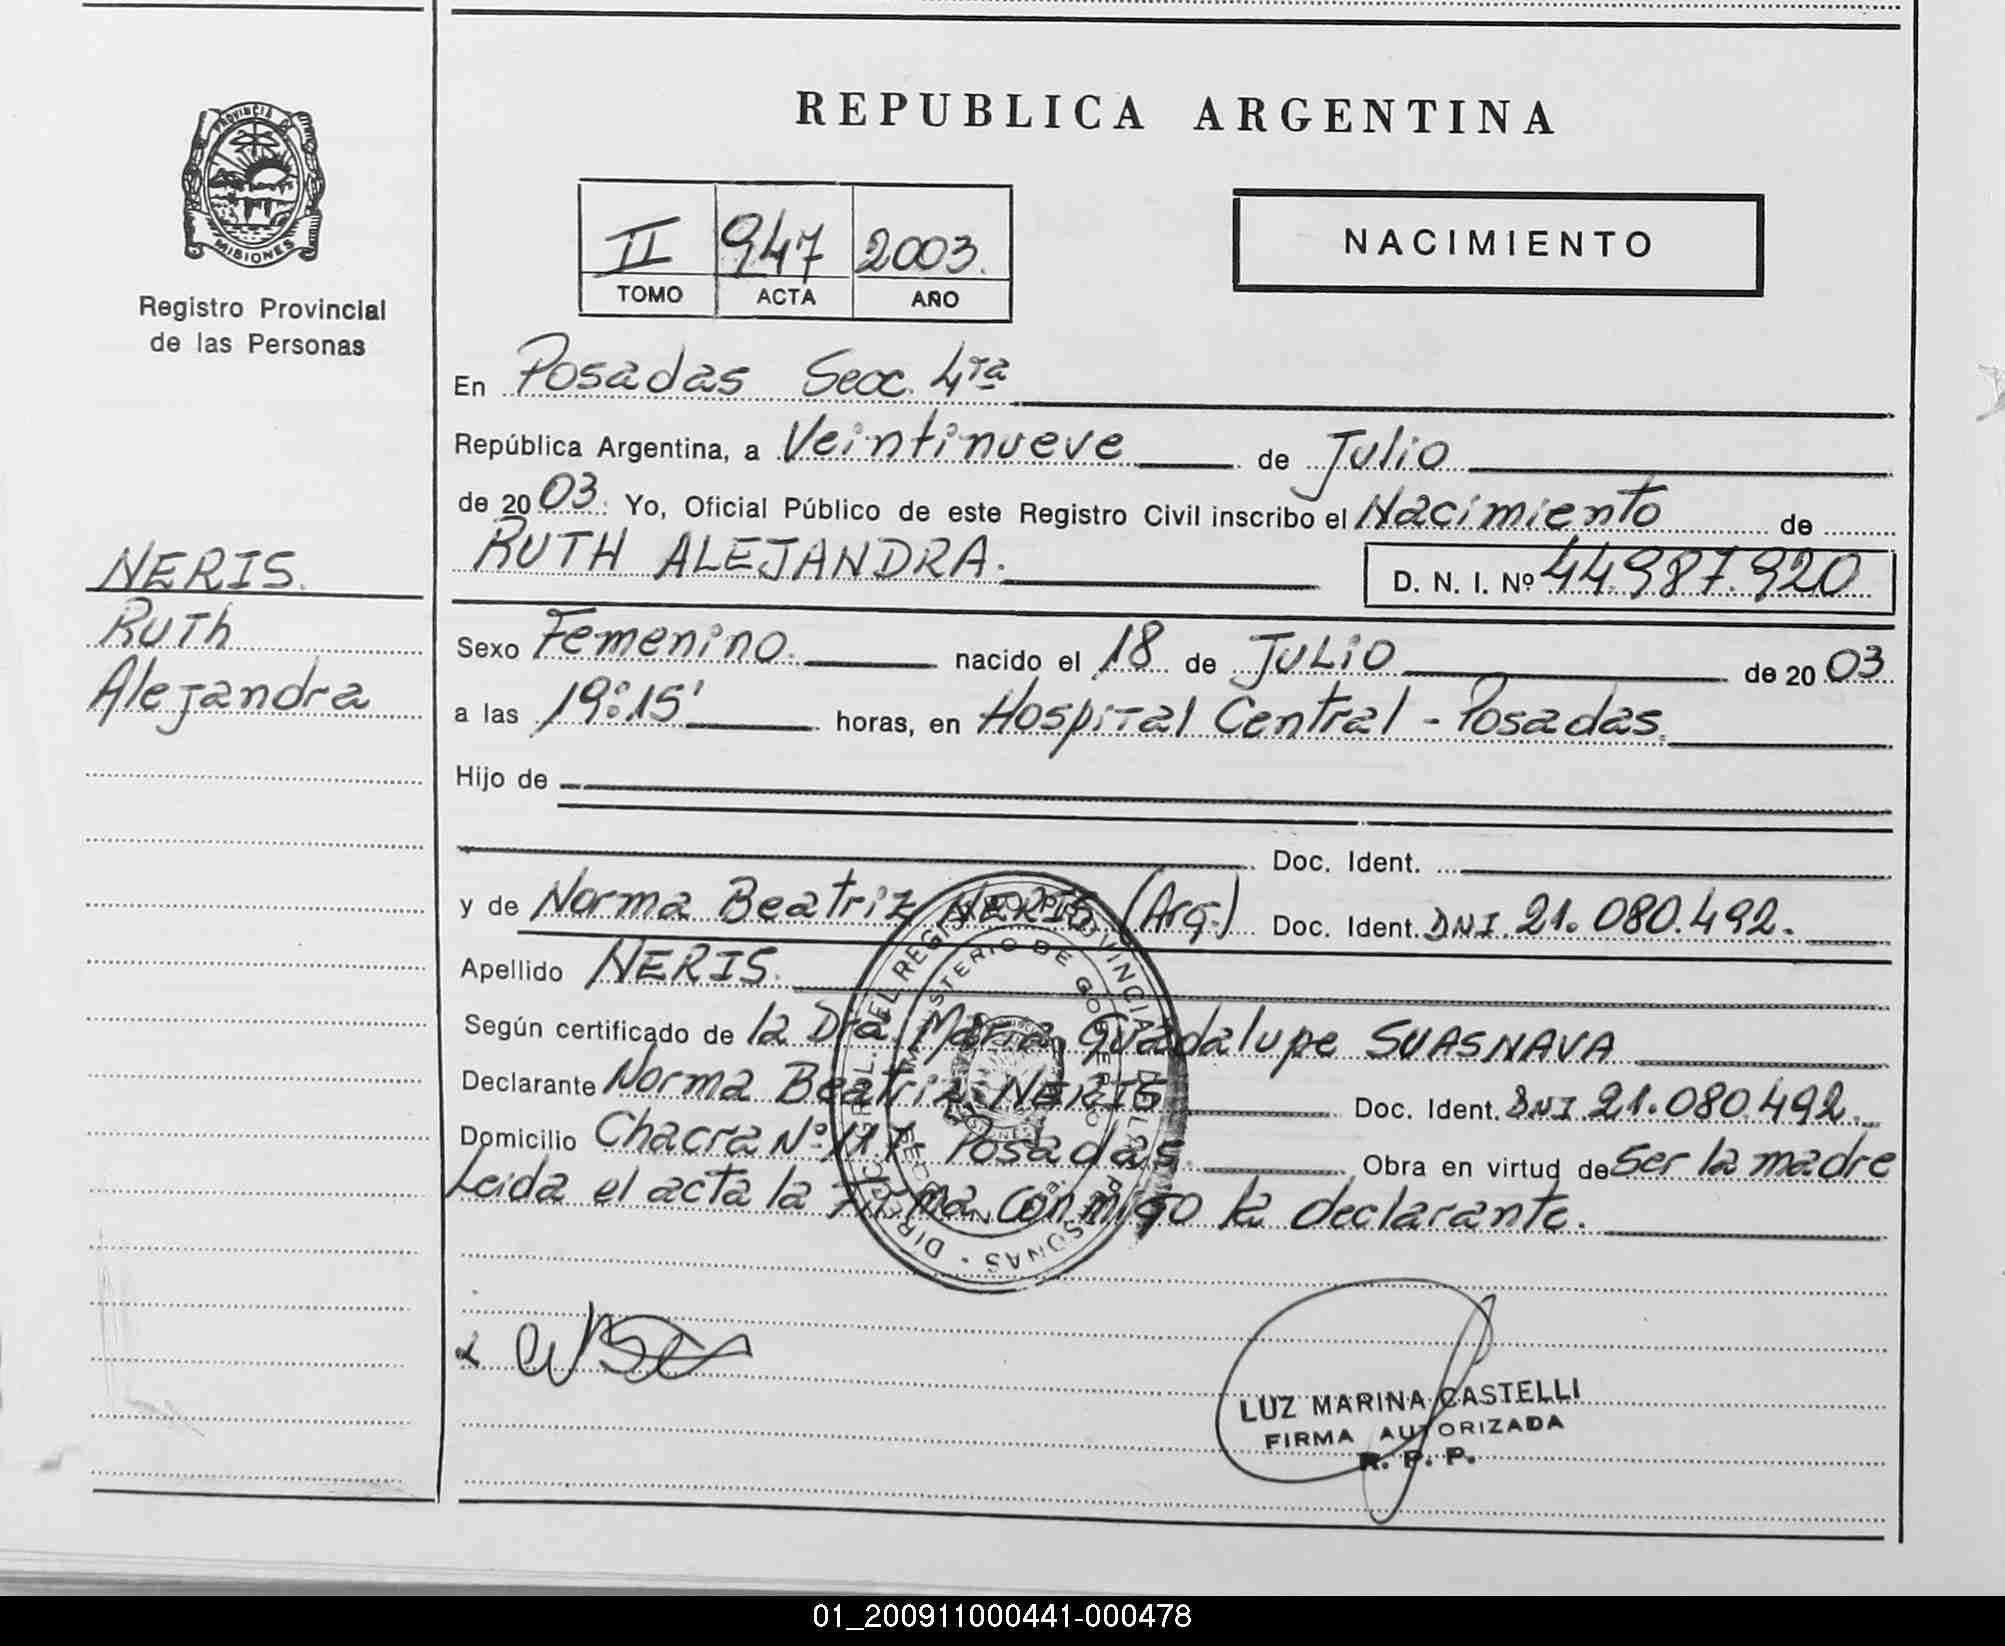 REPUBLICA ARGENTINA
PROVINCIA DE
MISIONES
Registro Provincial
de las Personas
II 947 2003.
TOMO ACTA AÑO
NACIMIENTO
NERIS.
Ruth
Alejandra
En Posadas Secc. 4ta
República Argentina, a Veintinueve de Julio
de 2003. Yo, Oficial Público de este Registro Civil inscribo el Nacimiento de
RUTH ALEJANDRA. D. N. I. Nº 44.987.920
Sexo Femenino. nacido el 18 de JULIO de 2003
a las 19:15' horas, en Hospital Central - Posadas.
Hijo de
Doc. Ident.
y de Norma Beatriz NERIS (Arg.) Doc. Ident. DNI 21.080.492.
Apellido NERIS.
Según certificado de la Dra. María Guadalupe SUASNAVA
Declarante Norma Beatriz NERIS Doc. Ident. DNI 21.080.492.
Domicilio Chacra Nº Posadas. Obra en virtud de Ser la madre
Leida el acta la firma conmigo la declarante.
LUZ MARINA CASTELLI
FIRMA AUTORIZADA
R. P. P.
01_200911000441-000478